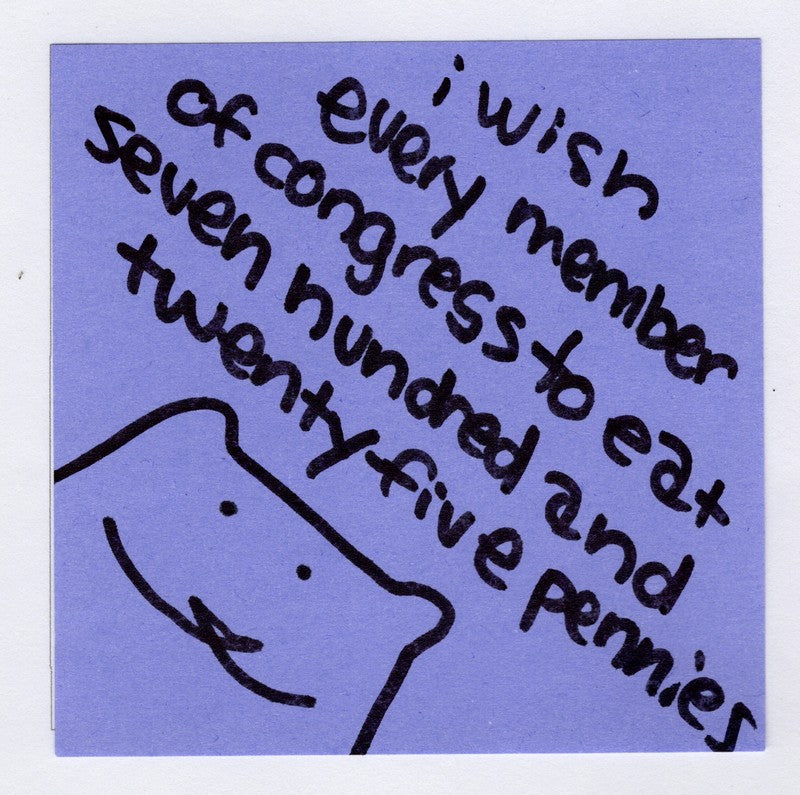 i wish
every member
of congress to eat
seven hundred and
twenty five pennies